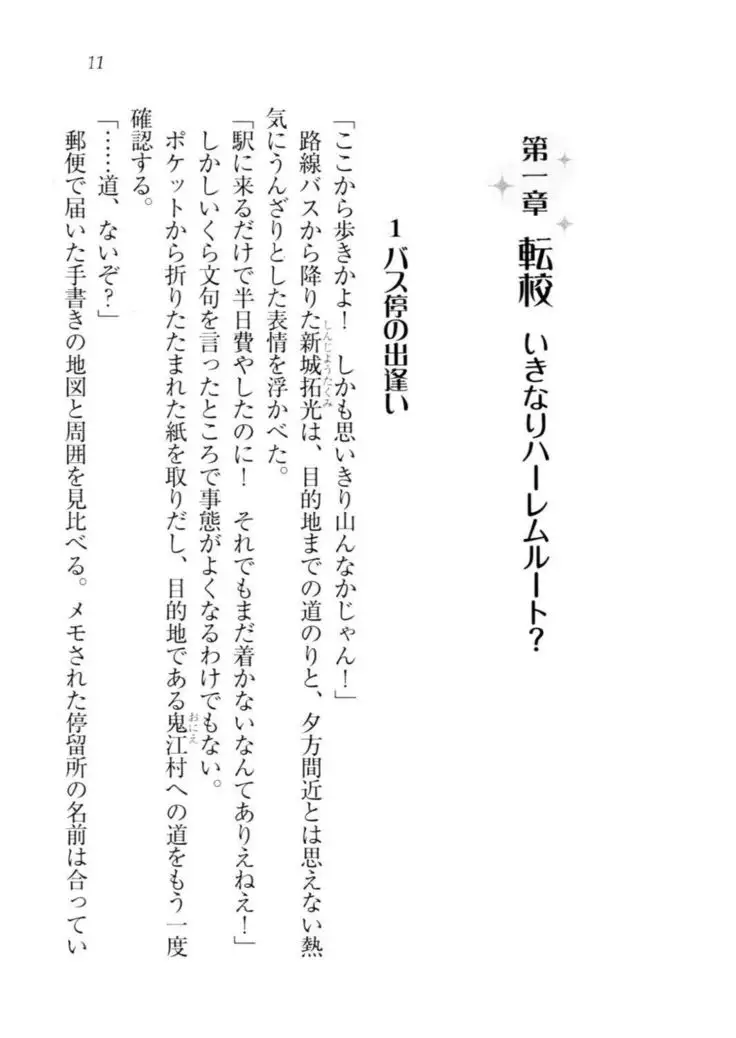 11
第一章 転校 いきなりハーレムルート?
1 バス停の出逢い
「ここから歩きかよ! しかも思いきり山んなかじゃん!」
路線バスから降りた新城拓光は、目的地までの道のりと、夕方間近とは思えない熱
しんじょうたくみ
気にうんざりとした表情を浮かべた。
「駅に来るだけで半日費やしたのに! それでもまだ着かないなんてありえねえ!」
しかしいくら文句を言ったところで事態がよくなるわけでもない。
ポケットから折りたたまれた紙を取りだし、目的地である鬼江村への道をもう一度
おにえ
確認する。
「……道、ないぞ?」
郵便で届いた手書きの地図と周囲を見比べる。メモされた停留所の名前は合ってい